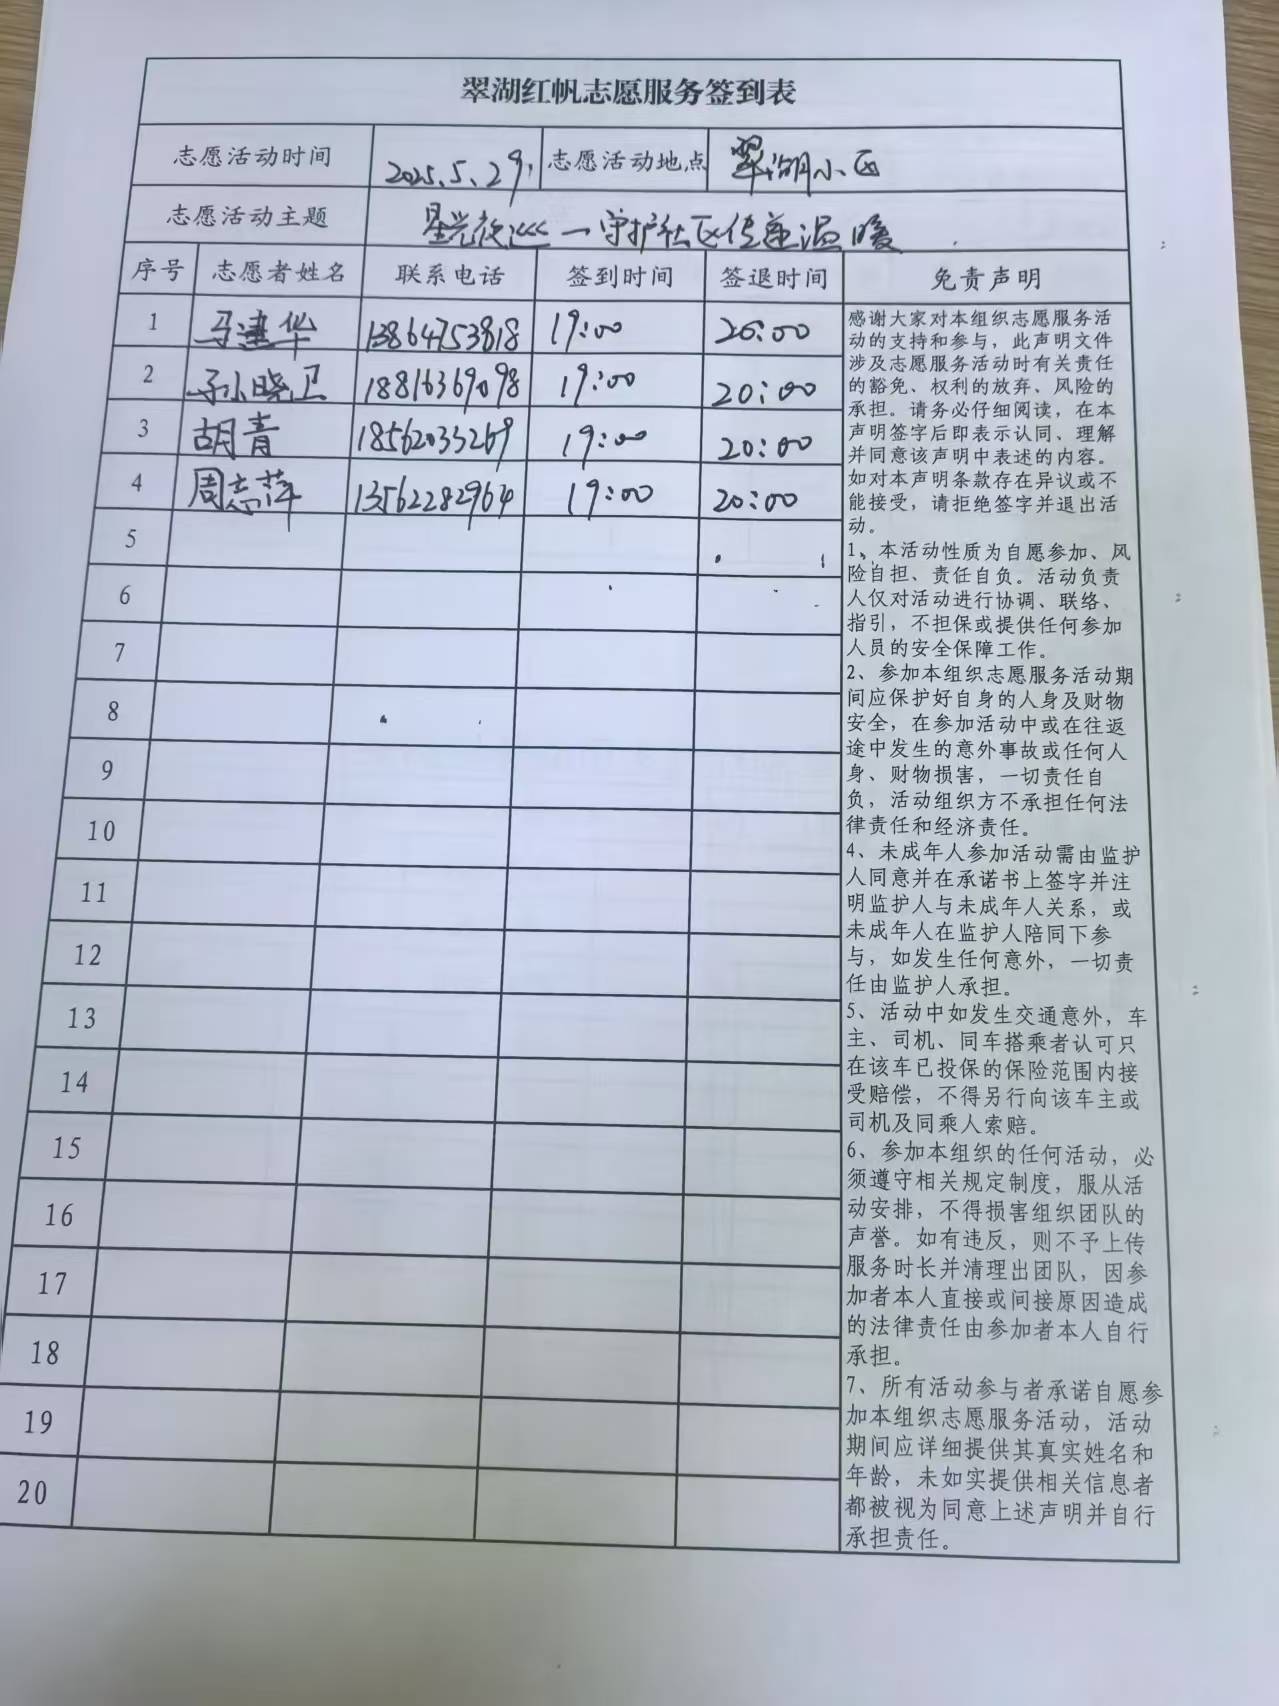 翠湖红帆志愿服务签到表
志愿活动时间 2025.5.29. 志愿活动地点 翠湖小区
志愿活动主题 星光夜巡—守护社区传递温暖
序号 志愿者姓名 联系电话 签到时间 签退时间 免责声明
1 马建华 13864753818 19:00 20:00
2 孙晓卫 18816369098 19:00 20:00
3 胡青 18562033269 19:00 20:00
4 周志萍 13562282964 19:00 20:00
5
6
7
8
9
10
11
12
13
14
15
16
17
18
19
20
感谢大家对本组织志愿服务活
动的支持和参与，此声明文件
涉及志愿服务活动时有关责任
的豁免、权利的放弃、风险的
承担。请务必仔细阅读，在本
声明签字后即表示认同、理解
并同意该声明中表述的内容。
如对本声明条款存在异议或不
能接受，请拒绝签字并退出活
动。
1、本活动性质为自愿参加、风
险自担、责任自负。活动负责
人仅对活动进行协调、联络、
指引，不担保或提供任何参加
人员的安全保障工作。
2、参加本组织志愿服务活动期
间应保护好自身的人身及财物
安全，在参加活动中或在往返
途中发生的意外事故或任何人
身、财物损害，一切责任自
负，活动组织方不承担任何法
律责任和经济责任。
4、未成年人参加活动需由监护
人同意并在承诺书上签字并注
明监护人与未成年人关系，或
未成年人在监护人陪同下参
与，如发生任何意外，一切责
任由监护人承担。
5、活动中如发生交通意外，车
主、司机、同车搭乘者认可只
在该车已投保的保险范围内接
受赔偿，不得另行向该车主或
司机及同乘人索赔。
6、参加本组织的任何活动，必
须遵守相关规定制度，服从活
动安排，不得损害组织团队的
声誉。如有违反，则不予上传
服务时长并清理出团队，因参
加者本人直接或间接原因造成
的法律责任由参加者本人自行
承担。
7、所有活动参与者承诺自愿参
加本组织志愿服务活动，活动
期间应详细提供其真实姓名和
年龄，未如实提供相关信息者
都被视为同意上述声明并自行
承担责任。